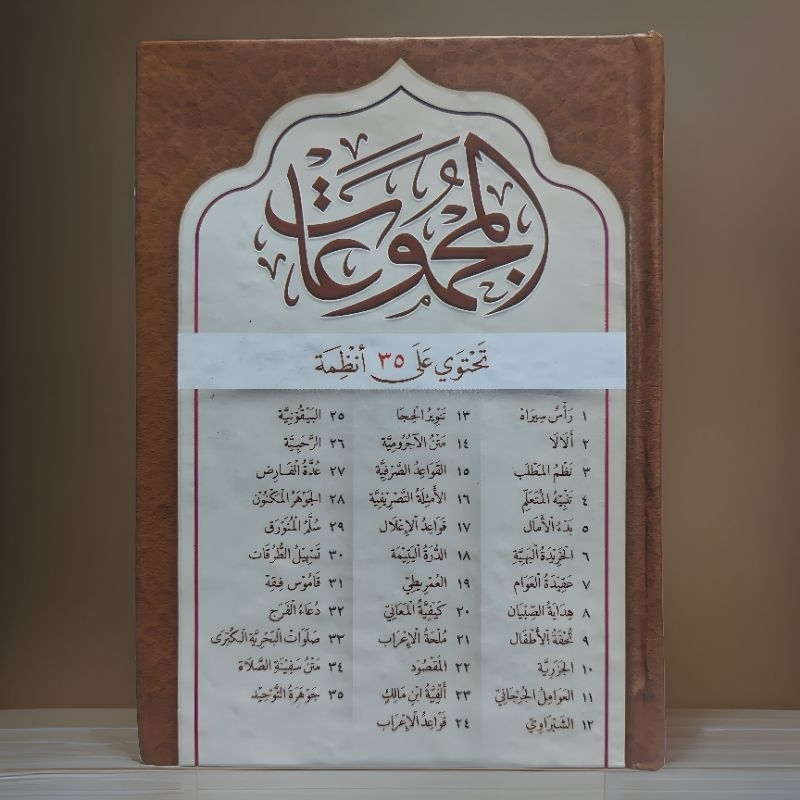 المجموعات
تحتوي على ٣٥ أنظمة
١ رَأْسْ سِيرَاهْ
٢ أَلَالَا
٣ نَظْمُ المَطْلَب
٤ تَنْبِيْهُ المُتَعَلِّم
٥ بَدْءُ الأَمَال
٦ الخَرِيْدَةُ البَهِيَّة
٧ عَقِيْدَةُ العَوَام
٨ هِدَايَةُ الصِّبْيَان
٩ تُحْفَةُ الأَطْفَال
١٠ الجَزَرِيَّة
١١ العَوَامِلُ الجُرْجَانِيّ
١٢ الشَّبْرَاوِيّ
١٣ تَنْوِيرُ الحِجَا
١٤ مَتْنُ الآجُرُومِيَّة
١٥ القَوَاعِدُ الصَّرْفِيَّة
١٦ الأَمْثِلَةُ التَّصْرِيفِيَّة
١٧ قَوَاعِدُ الإِعْلَال
١٨ الدُّرَةُ اليَتِيْمَة
١٩ العِمْرِيطِيّ
٢٠ كَيْفِيَّةُ المَعَانِيّ
٢١ مُلْحَةُ الإِعْرَاب
٢٢ المَقْصُود
٢٣ أَلْفِيَّةُ ابْنِ مَالِكٍ
٢٤ قَوَاعِدُ الإِعْرَاب
٢٥ البَيْقُوْنِيَّة
٢٦ الرَّحَبِيَّة
٢٧ عُدَّةُ الفَارِض
٢٨ الجَوْهَرُ المَكْنُوْن
٢٩ سُلَّمُ المُنَوْرَق
٣٠ تَسْهِيْلُ الطُّرُقَات
٣١ قَامُوْس فِقِهْ
٣٢ دُعَاءُ الفَرَج
٣٣ صَلَوَاتُ البَحْرِيَّةِ الكُبْرَى
٣٤ مَتْنُ سَفِيْنَةِ الصَّلَاة
٣٥ جَوْهَرَةُ التَّوْحِيْد